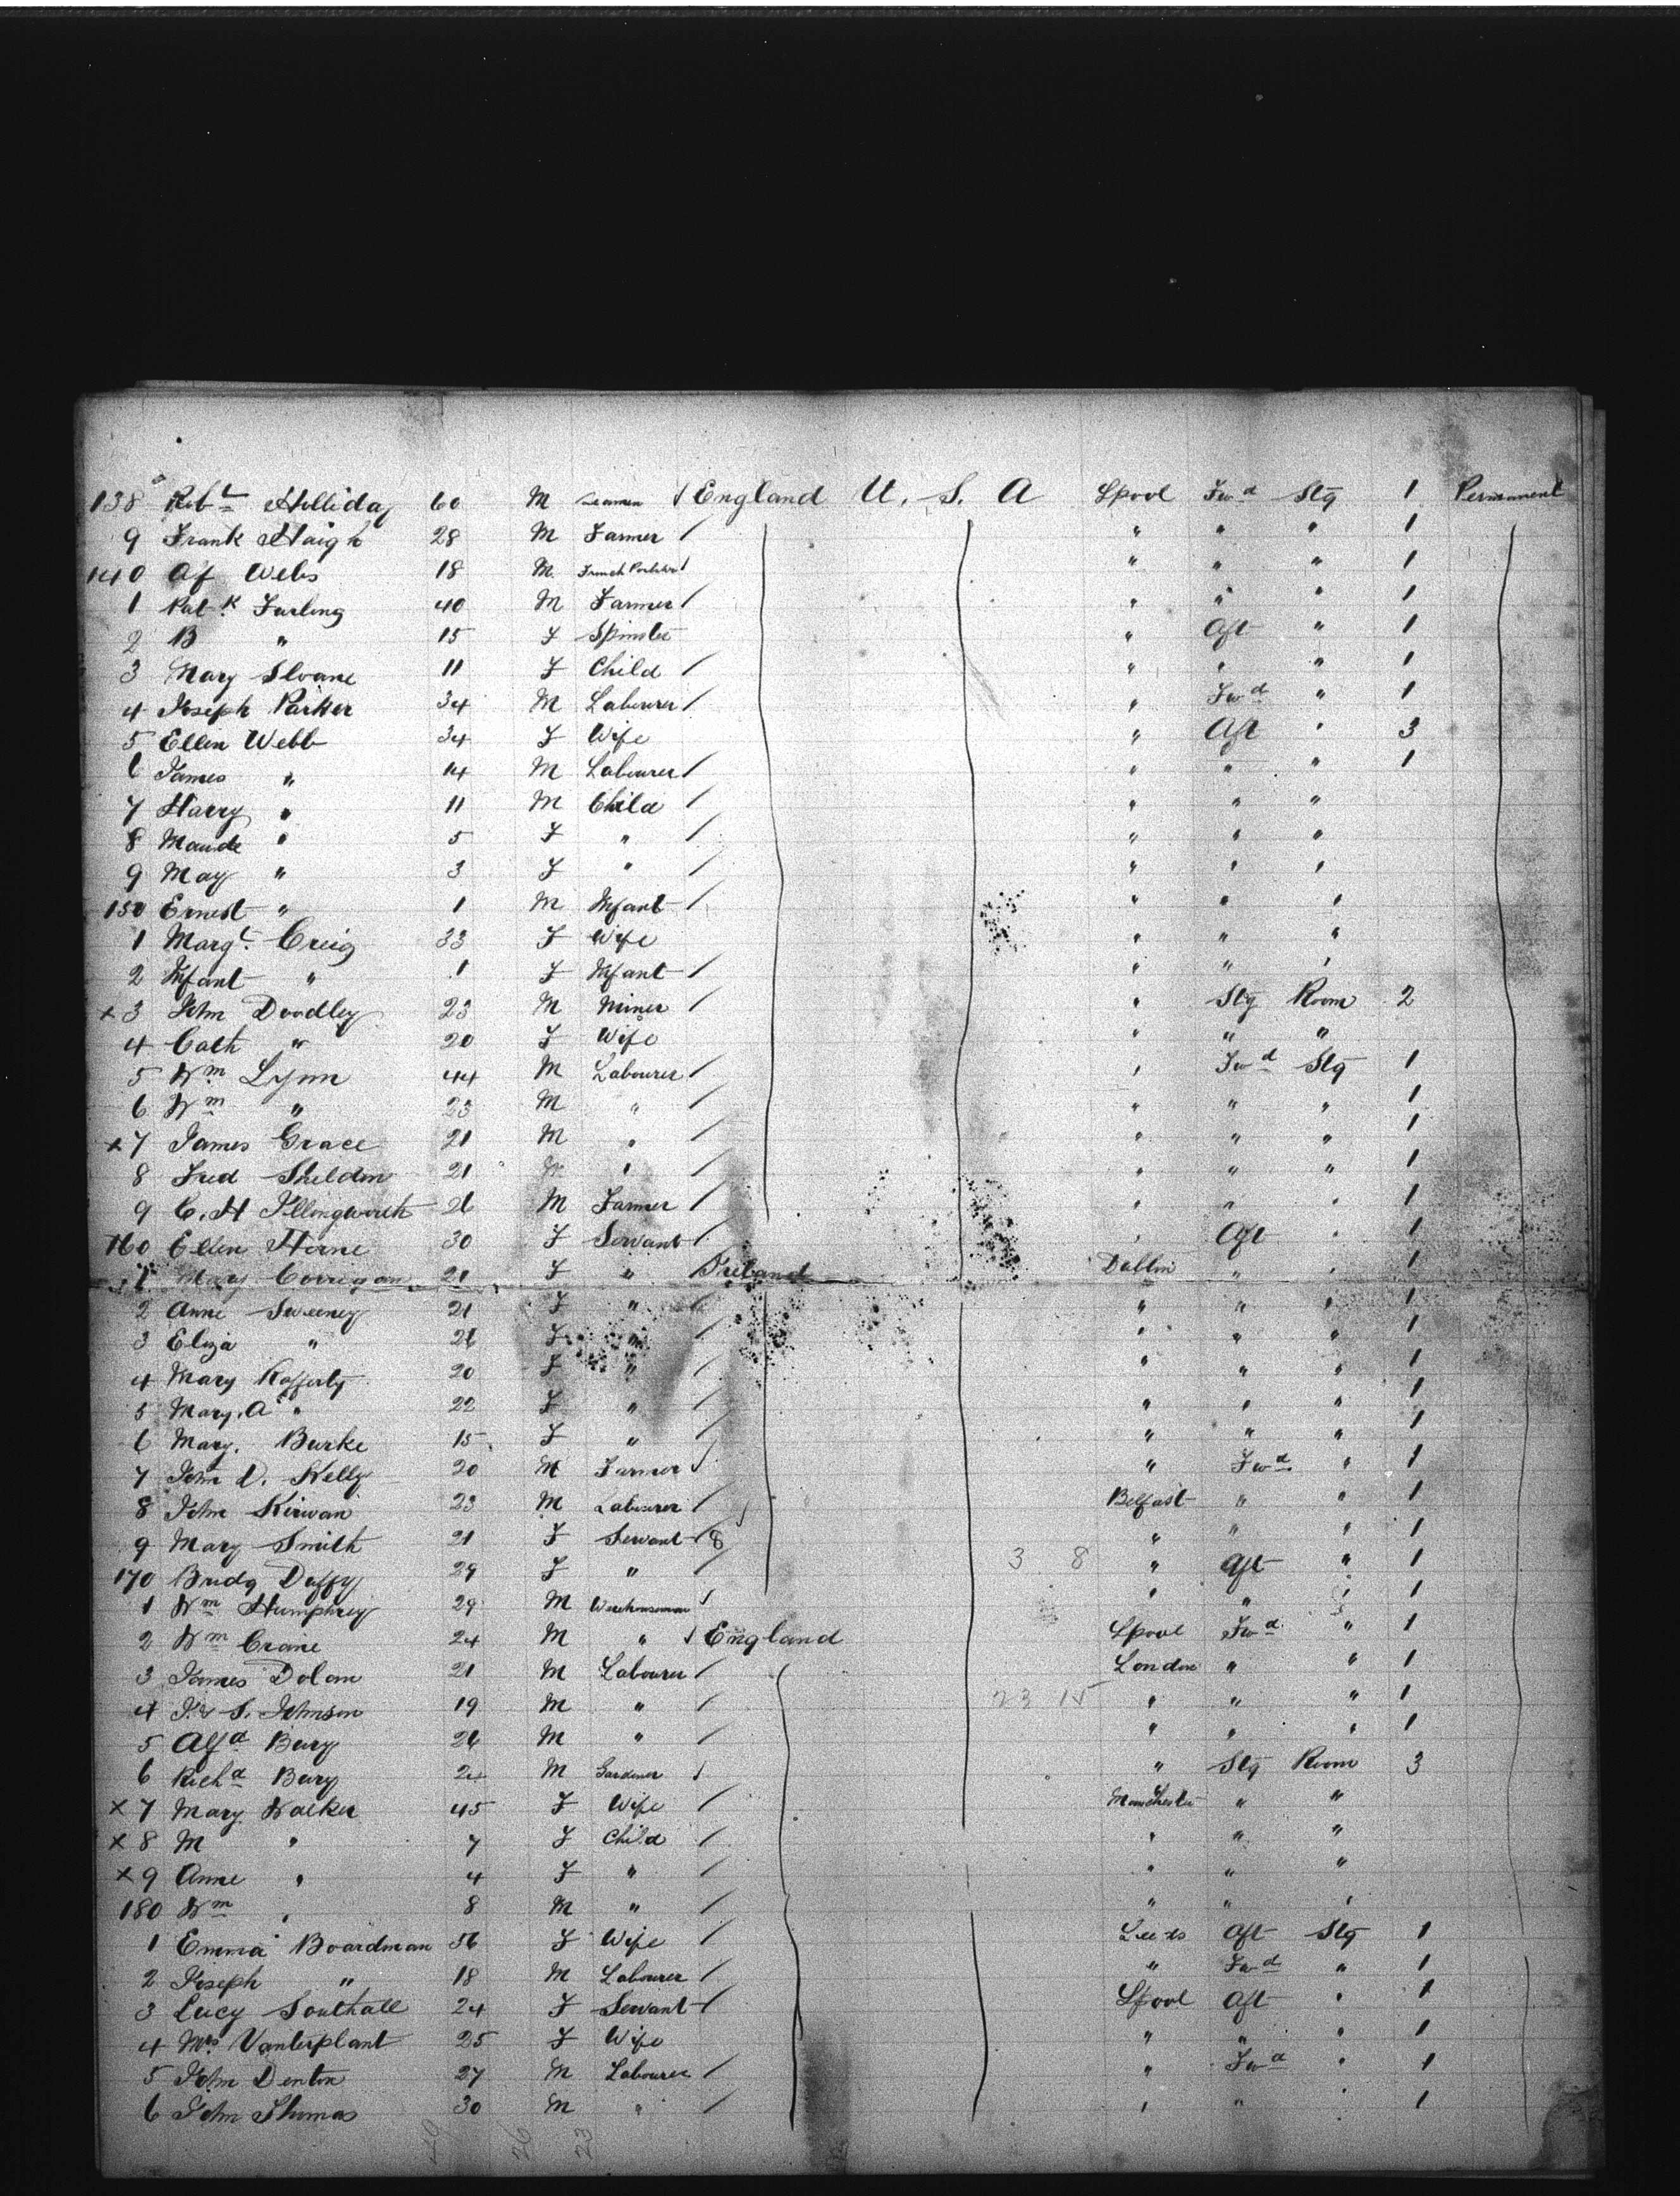 138 Robt Holliday 60 M Seaman √ England U. S. A Lpool Fwd Stg 1 Permanent
9 Frank Haigh 28 M Farmer / " " " 1
140 Af Webs 18 M / " " " 1
1 Patk Furlong 40 M Farmer / " " " 1
2 B " 15 F Spinster " Aft " 1
3 Mary Sloane 11 F Child / " " " 1
4 Joseph Parker 34 M Labourer / " Fwd " 1
5 Ellen Webb 34 F Wife " Aft " 3
6 James " 14 M Labourer / " " " 1
7 Harry " 11 M Child / " " "
8 Maude " 5 F " / " " "
9 May " 3 F " / " " "
150 Ernest " 1 M Infant / " " "
1 Margt Creig 33 F Wife " " "
2 Infant " 1 F Infant / " " "
x 3 John Doodley 23 M Miner / " Stg Room 2
4 Cath " 20 F Wife " " "
5 Wm Lynn 44 M Labourer / " Fwd Stg 1
6 Wm " 23 M " / " " " 1
x 7 James Grace 21 M " / " " " 1
8 Fred Sheldon 21 M " / " " " 1
9 C. H Illingworth 26 M Farmer / " " " 1
160 Ellen Horne 30 F Servant / " Aft " 1
1 Mary Corrigan 21 F " Ireland Dublin " " 1
2 Anne Sweeney 21 F " / " " " 1
3 Eliza " 26 F " / " " " 1
4 Mary Rafferty 20 F " / " " " 1
5 Mary. A " 22 F " / " " " 1
6 Mary. Burke 15 F " / " " " 1
7 John D. Kelly 20 M Farmer √ " Fwd " 1
8 John Kirwan 23 M Labourer / Belfast " " 1
9 Mary Smith 21 F Servant 8 / " " " 1
170 Bridg Duffy 29 F " / 3 8 " Aft " 1
1 Wm Humphrey 29 M Warehouseman √ " " " 1
2 Wm Crane 24 M " √ England Lpool Fwd " 1
3 James Dolan 21 M Labourer / London " " 1
4 S. Johnson 19 M " / 23 15 " " " 1
5 Alfd Bury 26 M " / " " " 1
6 Richd Bury 24 M Gardener √ " Stg Room 3
x 7 Mary Walker 45 F Wife / Manchester " "
x 8 M " 7 F Child / " " "
x 9 Anne " 4 F " / " " "
180 Wm " 8 M " / " " "
1 Emma Boardman 56 F Wife / Leeds Aft Stg 1
2 Joseph " 18 M Labourer / " Fwd " 1
3 Lucy Southall 24 F Servant / Lpool Aft " 1
4 Mrs Vanterplant 25 F Wife " " " 1
5 John Denton 27 M Labourer / " Fwd " 1
6 John Thomas 30 M " / " " " 1
49 26 23